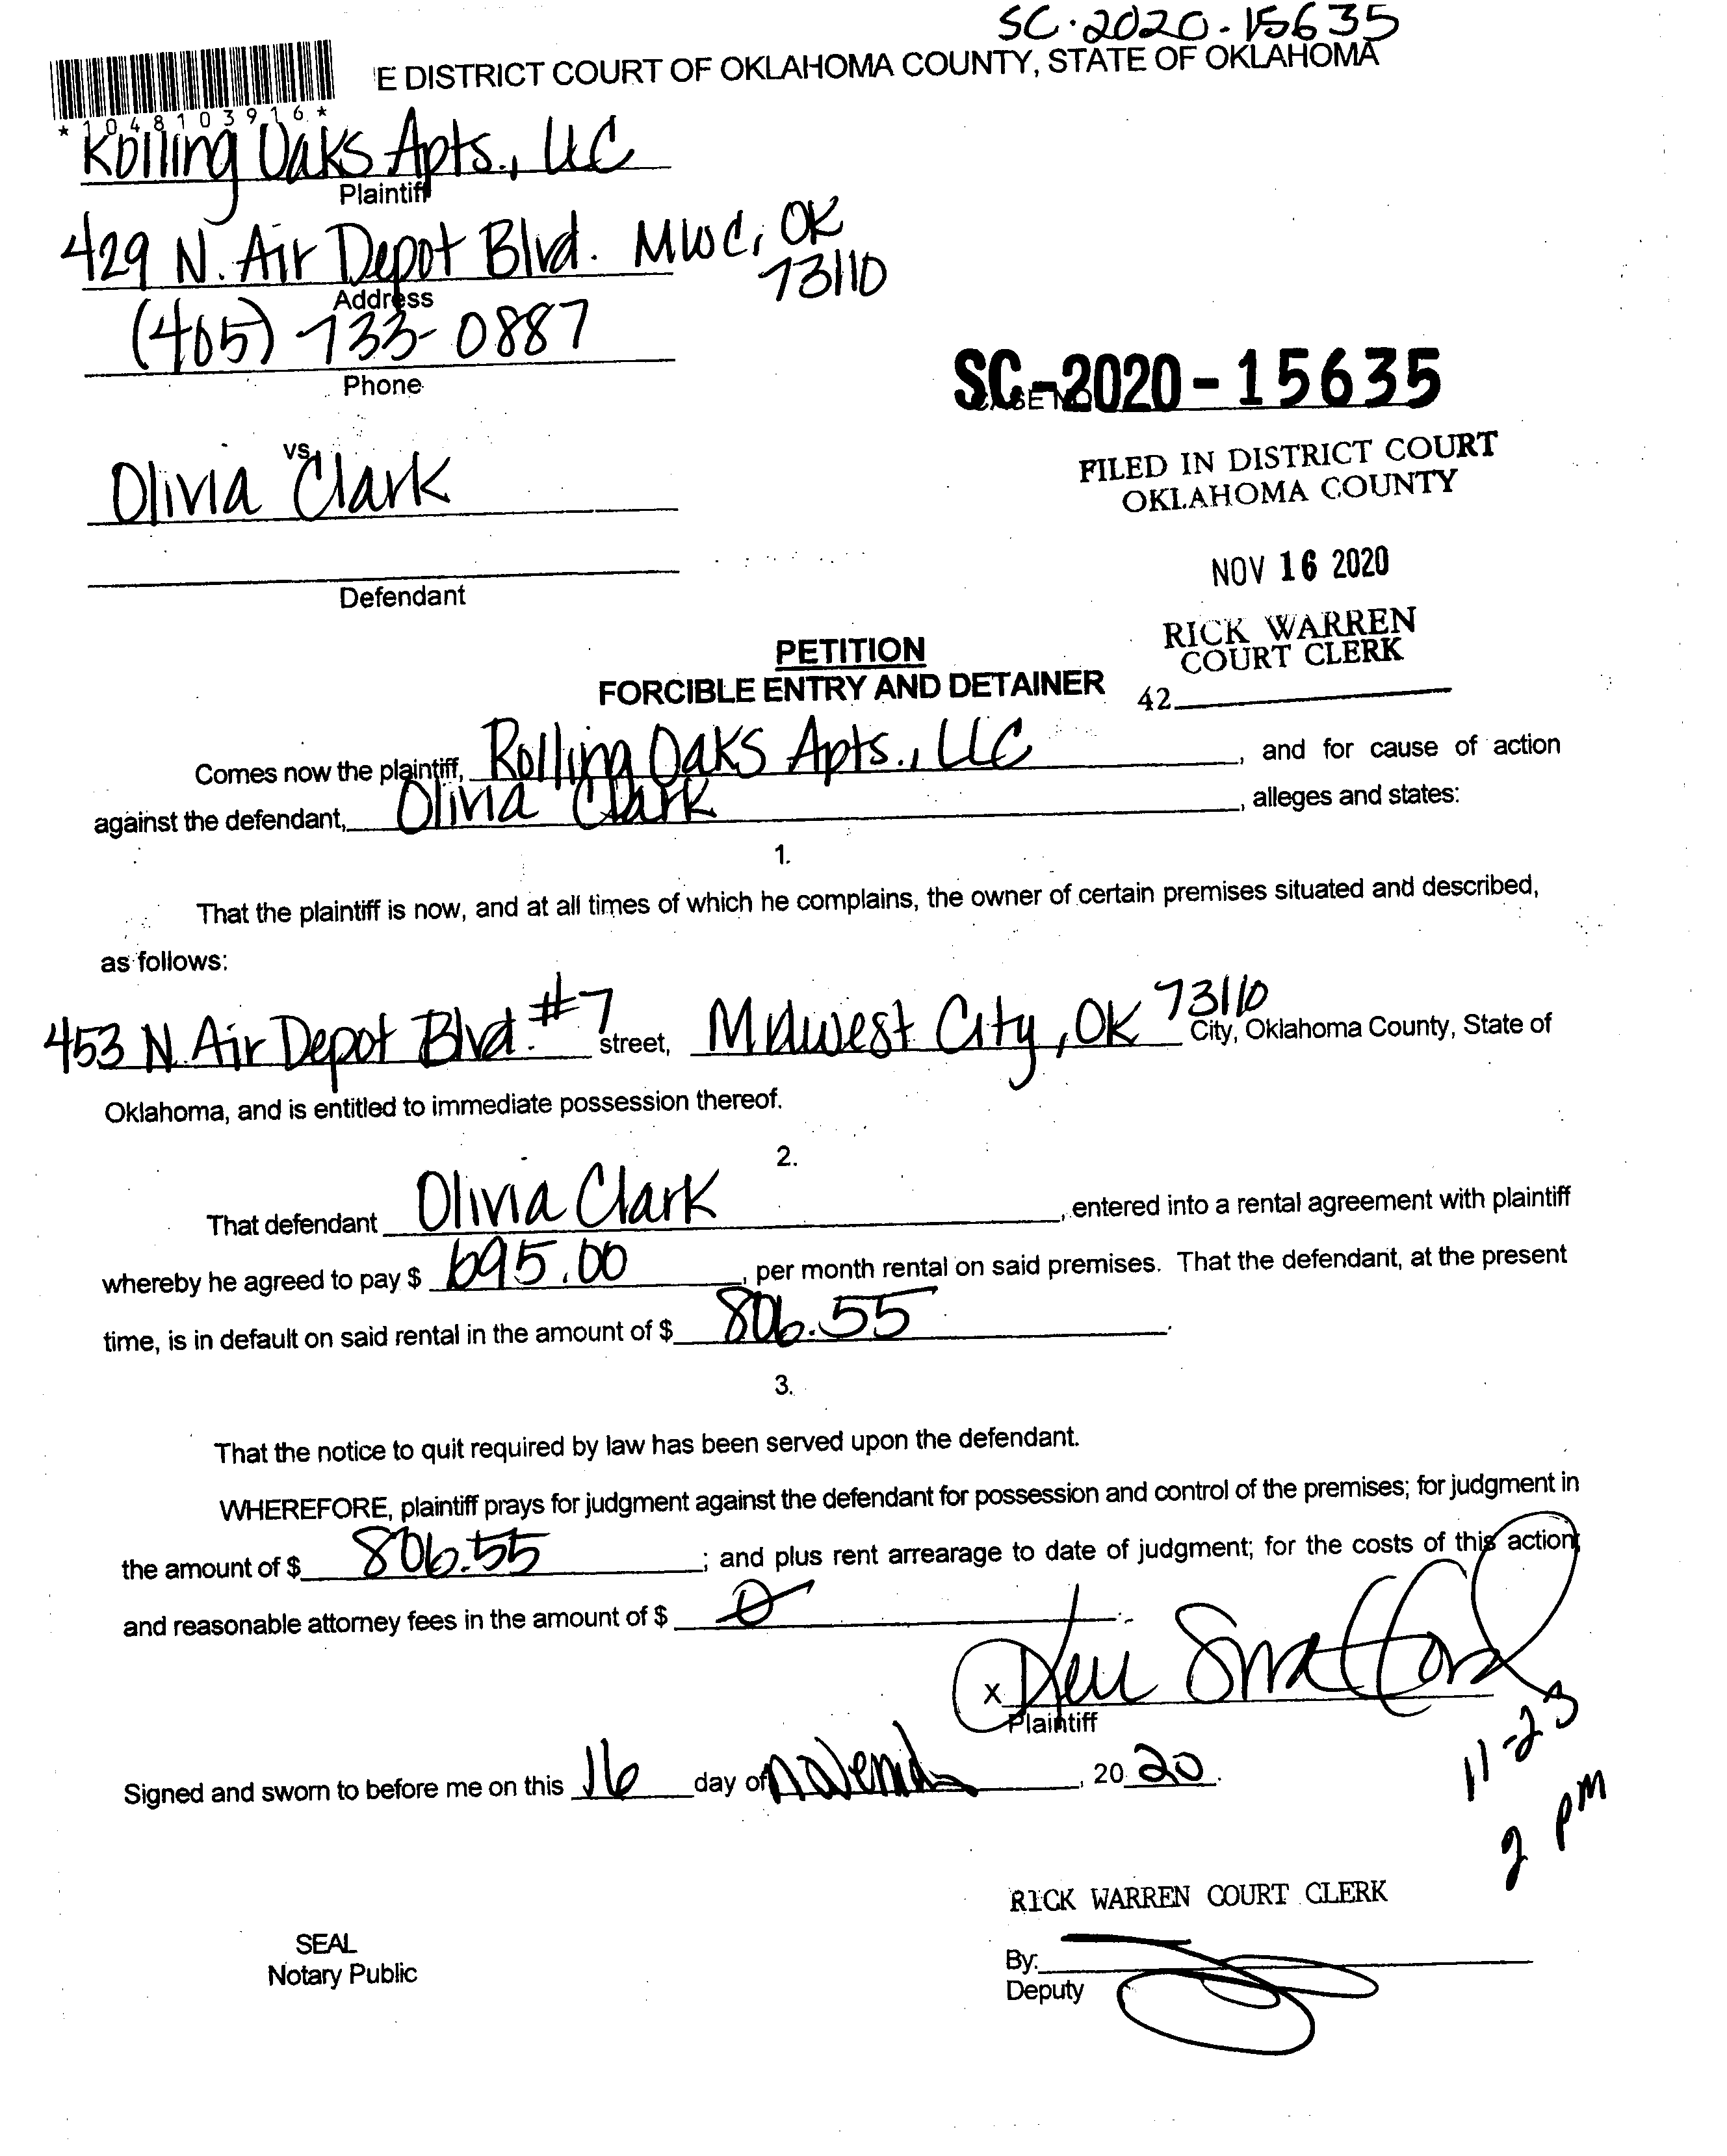 SC-2020-15635
E DISTRICT COURT OF OKLAHOMA COUNTY, STATE OF OKLAHOMA
*1048103916*
Rolling Oaks Apts., LLC
Plaintiff
429 N. Air Depot Blvd. MWC, OK
73110
Address
(405) 733-0887
Phone
SC-2020-15635
vs.
Olivia Clark
FILED IN DISTRICT COURT
OKLAHOMA COUNTY
NOV 16 2020
Defendant
RICK WARREN
COURT CLERK
42
PETITION
FORCIBLE ENTRY AND DETAINER
Comes now the plaintiff, Rolling Oaks Apts., LLC, and for cause of action
against the defendant, Olivia Clark, alleges and states:
1.
That the plaintiff is now, and at all times of which he complains, the owner of certain premises situated and described,
as follows:
453 N. Air Depot Blvd. #7 street, Midwest City, OK 73110 City, Oklahoma County, State of
Oklahoma, and is entitled to immediate possession thereof.
2.
That defendant Olivia Clark, entered into a rental agreement with plaintiff
whereby he agreed to pay $ 695.00, per month rental on said premises. That the defendant, at the present
time, is in default on said rental in the amount of $ 806.55.
3.
That the notice to quit required by law has been served upon the defendant.
WHEREFORE, plaintiff prays for judgment against the defendant for possession and control of the premises; for judgment in
the amount of $ 806.55; and plus rent arrearage to date of judgment; for the costs of this action;
and reasonable attorney fees in the amount of $ 0.
x
Plaintiff
11-23
2 pm
Signed and sworn to before me on this 16 day of November, 2020.
RICK WARREN COURT CLERK
SEAL
Notary Public
By:
Deputy